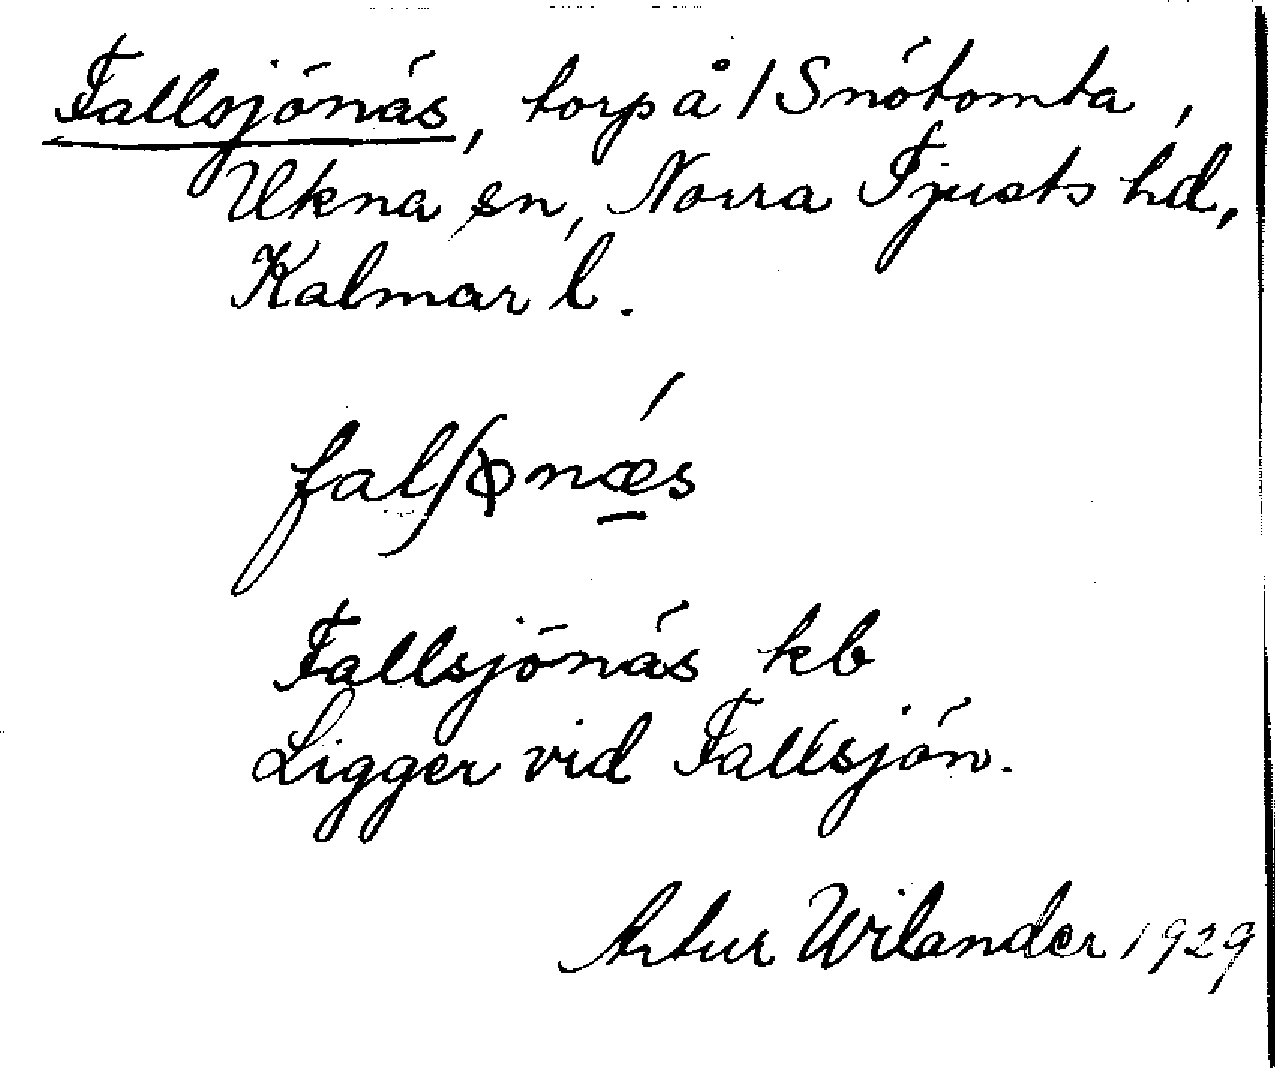 Fallsjönäs, torp å 1 Snötomta,
Ukna sn, Norra Tjusts hd,
Kalmar l.
falʃɸnæs
Fallsjönäs kb
Ligger vid Fallsjön.
Artur Wilander 1929